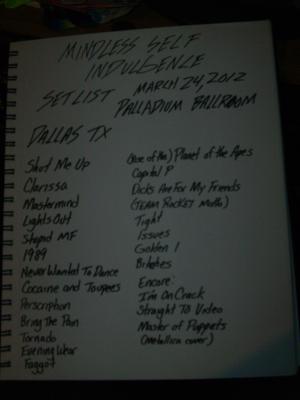 MINDLESS SELF
INDULGENCE
SET LIST MARCH 24, 2012
PALLADIUM BALLROOM
DALLAS TX
Shut Me Up
Clarissa
Mastermind
Lights Out
Stupid MF
1989
Never Wanted To Dance
Cocaine and Toupees
Perscription
Bring The Pain
Tornado
Evening Wear
Faggot
(Rise of the) Planet of the Apes
Capital P
Dicks Are For My Friends
(TEAM ROCKET Motto)
Tight
Issues
Golden I
Bitches
Encore:
I'm On Crack
Straight To Video
Master of Puppets
(Metallica cover)